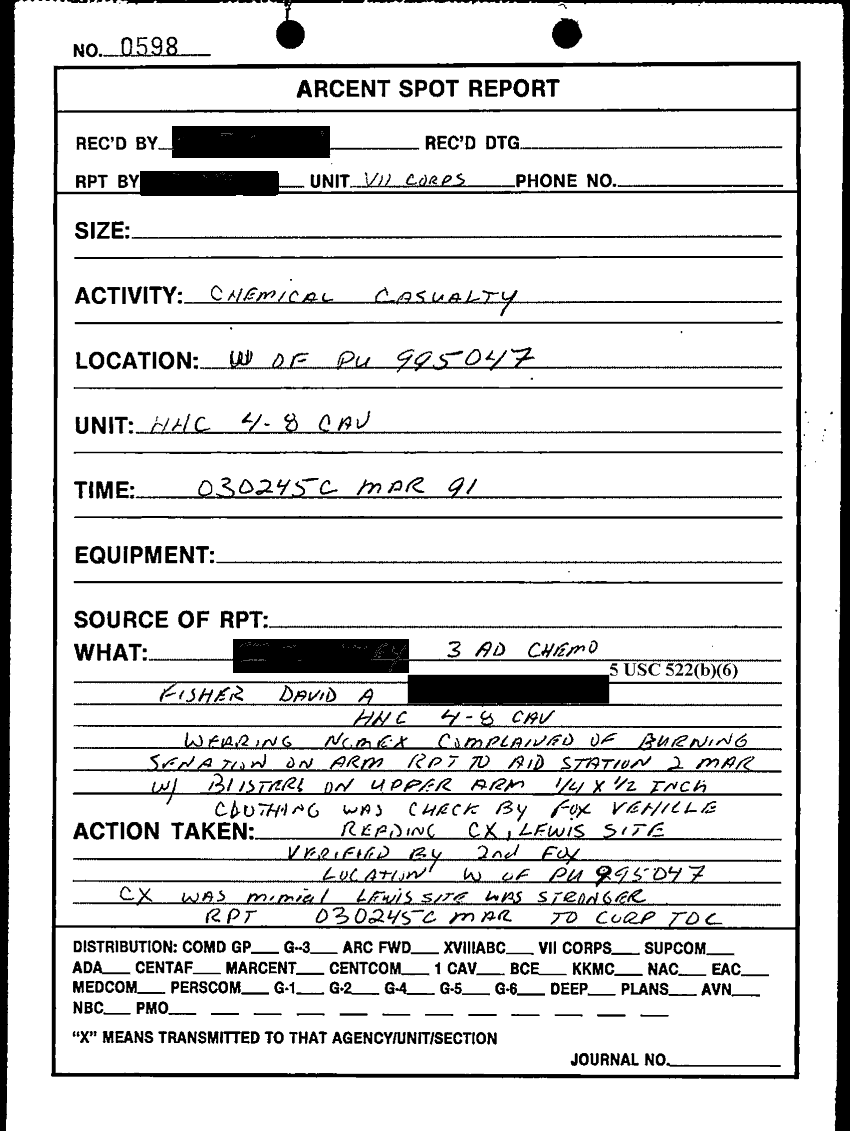 NO. 0598
ARCENT SPOT REPORT
REC'D BY REC'D DTG
RPT BY UNIT VII CORPS PHONE NO.
SIZE:
ACTIVITY: CHEMICAL CASUALTY
LOCATION: W OF PU 995047
UNIT: HHC 4-8 CAV
TIME: 030245C MAR 91
EQUIPMENT:
SOURCE OF RPT:
WHAT: 3 AD CHEMO
5 USC 522(b)(6)
FISHER DAVID A
HHC 4-8 CAV
WEARING NOMEX COMPLAINED OF BURNING
SENATION ON ARM RPT TO AID STATION 2 MAR
W/ BLISTERS ON UPPER ARM 1/4 X 1/2 INCH
CLOTHING WAS CHECK BY FOX VEHILLE
ACTION TAKEN: READING CX, LEWIS SITE
VERIFIED BY 2nd FOX
LOCATION W OF PU 995047
CX WAS mimial LEWIS SITE WAS STRONGER
RPT 030245C MAR TO CORP TOC
DISTRIBUTION: COMD GP G-3 ARC FWD XVIIIABC VII CORPS SUPCOM
ADA CENTAF MARCENT CENTCOM 1 CAV BCE KKMC NAC EAC
MEDCOM PERSCOM G-1 G-2 G-4 G-5 G-6 DEEP PLANS AVN
NBC PMO
"X" MEANS TRANSMITTED TO THAT AGENCY/UNIT/SECTION
JOURNAL NO.